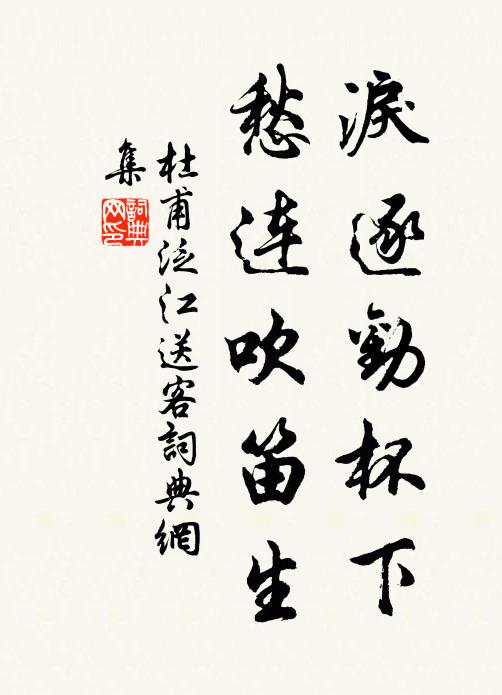 淚逐勸杯下
愁连吹笛生
杜甫泛江送客詞典網
集
詞典
网印